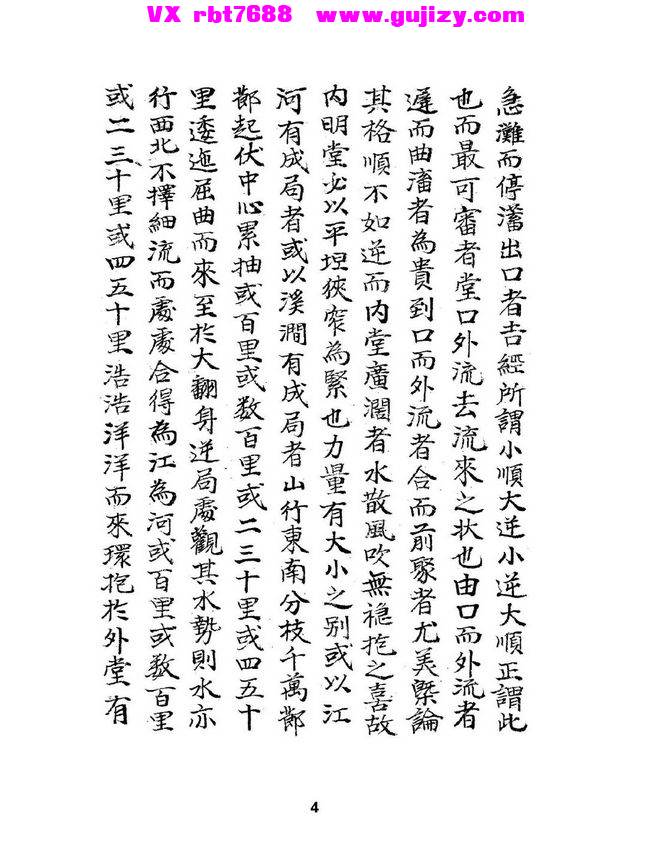 VX rbt7688 www.gujizy.com
急灘而停瀦出口者吉經所謂小順大逆小逆大順正謂此
也而最可審者堂口外流去流來之狀也由口而外流者
遲而曲瀦者為貴到口而外流者合而前聚者尤美槩論
其格順不如逆而内堂廣濶者水散風吹無穏抱之喜故
内明堂必以平坦狹窄為緊也力量有大小之别或以江
河有成局者或以溪澗有成局者山行東南分枝千萬鄯
鄯起伏中心累抽或百里或数百里或二三十里或四五十
里逶迤屈曲而來至於大翻身逆局處觀其水勢則水亦
行西北不擇細流而處處合得為江為河或百里或数百里
或二三十里或四五十里浩浩洋洋而來環抱於外堂有
4